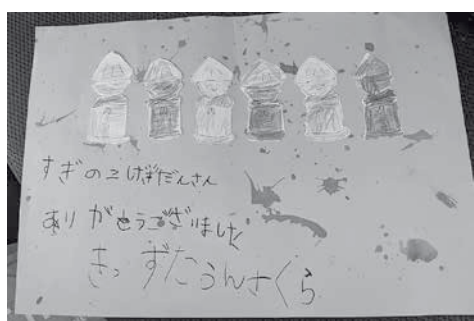 すぎのこげきだんさん
ありがとうございました
きっずたうんさくら